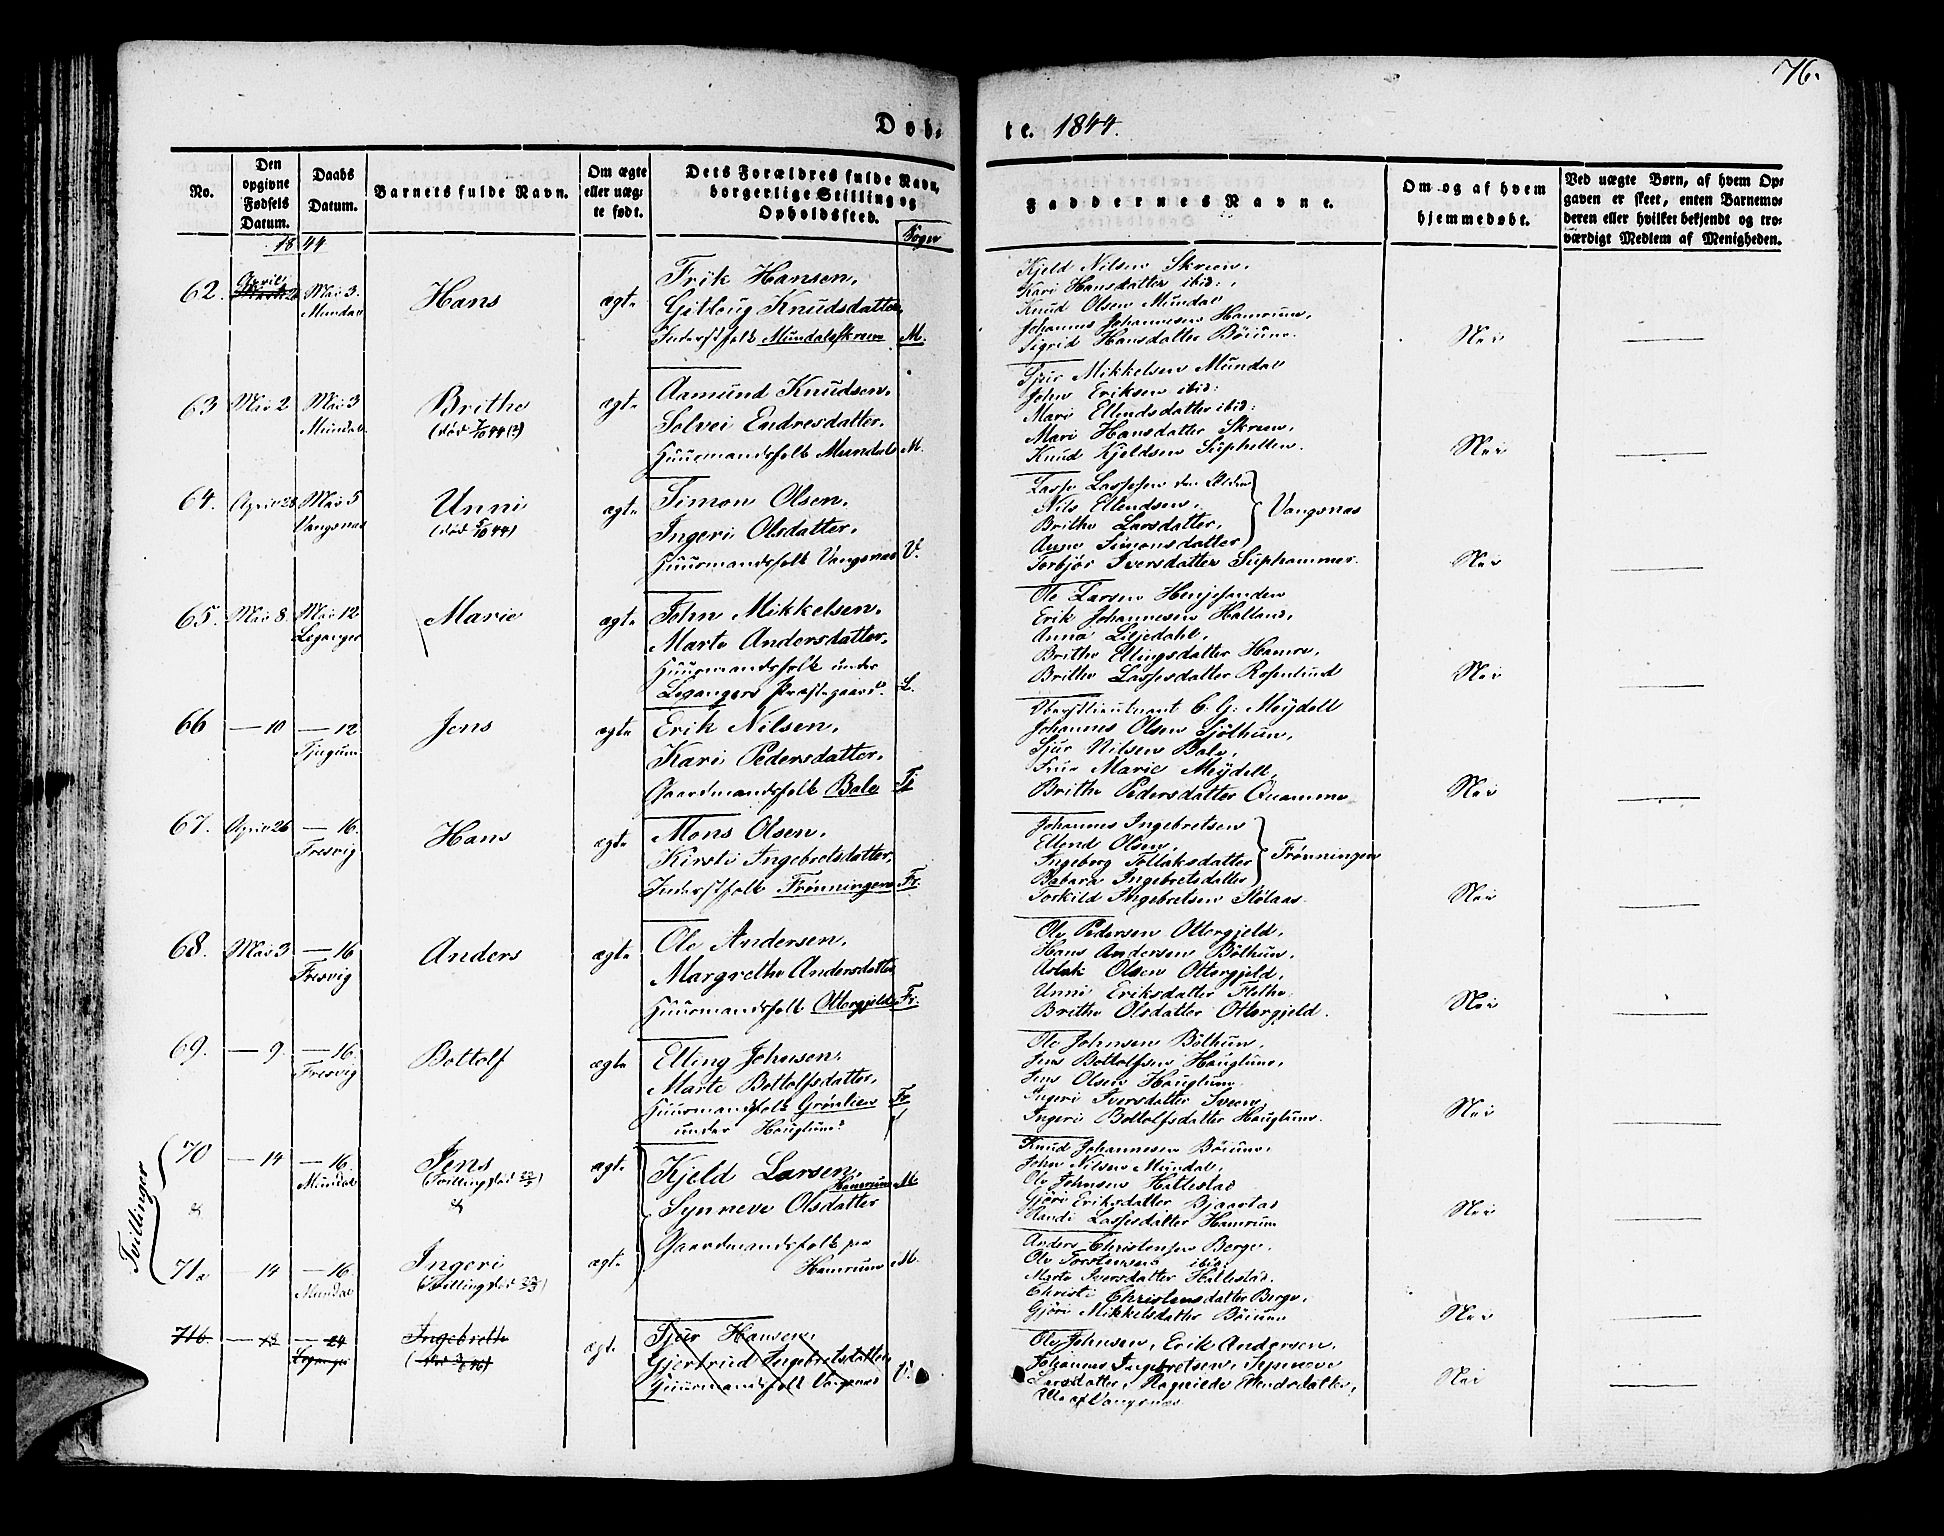 76.
Døb-
te. 1844.
No.
Den opgivne Fødsels Datum.
Daabs Datum.
Barnets fulde Navn.
Om ægte eller uæg-
te født.
Dets Forældres fulde Navn,
borgerlige Stilling og
Opholdssted.
Sogn
Faddernes Navne.
Om og af hvem
hjemmedøbt.
Ved uægte Børn, af hvem Op-
gaven er skeet, enten Barnemo-
deren eller hvilket bekjendt og tro-
værdigt Medlem af Menigheden.
1844
62. April Mai 3. Mundal
Hans
ægte
Erik Hansen,
Gitloug Knudsdatter,
Inderstfolk Mundalsskreen M.
Kjeld Nilsen Skreen,
Kari Hansdatter ibid:,
Knud Olsen Mundal
Johannes Johannesen Hamrum,
Sigrid Hansdatter Bøium.
Nei
63 Mai 2 Mai 3 Mundal
Brithe
(død 7/10 44 (?)
ægte
Aamund Knudsen,
Solvei Endresdatter,
Huusmandsfolk Mundal M.
Sjur Mikkelsen Mundal
John Eriksen ibid:
Mari Ellendsdatter ibid:
Mari Hansdatter Skreen,
Knud Kjeldsen Suphellen.
Nei
64. April 28 Mai 5 Vangsnæs
Unni
(død 5/10 44)
ægte
Simon Olsen,
Ingeri Olsdatter,
Huusmandsfolk Vangsnæs V.
Lasse Lassesen den Ældre
Nils Ellendsen,
Brithe Larsdatter,
Anne Simonsdatter
Vangsnæs
Torbjør Iversdatter Suphammer.
Nei
65. Mai 8. Mai 12 Leganger
Marie
ægte
John Mikkelsen,
Marte Andersdatter,
Huusmandsfolk under
Legangers Præstegaard. L.
Ole Larsen Henjesanden
Erik Johannesen Halland,
Anna Liljedahl,
Brithe Ellingsdatter Hamre,
Brithe Lassesdatter Rosenlund
Nei
66 — 10 — 12 Tjugum
Jens
ægte
Erik Nilsen,
Kari Pedersdatter,
Gaardmandsfolk Bale Tj
Oberstlieutnant C. G. Meydell
Johannes Olsen Sjøthun,
Sjur Nilsen Bale,
Frue Marie Meydell,
Brithe Pedersdatter Quamme
Nei
67. April 26 — 16. Fresvig
Hans
ægte
Mons Olsen,
Kirsti Ingebretsdatter,
Inderstfolk Frønningen Fr.
Johannes Ingebretsen
Ellend Olsen,
Ingeborg Tollaksdatter
Babara Ingebretsdatter
Frønningen
Torkild Ingebretsen Stølaas.
Nei
68. Mai 3 — 16 Fresvig
Anders
ægte
Ole Andersen,
Margrethe Andersdatter
Huusmandsfolk Ottergjeld Fr.
Ole Pedersen Ottergjeld,
Hans Andersen Bøthun,
Aslak Olsen Ottergjeld,
Unni Eriksdatter Flethe
Brithe Olsdatter Ottergjeld.
Nei
69. — 9. — 16. Fresvig
Bottolf
ægte
Elling Johnsen,
Marte Bottolfsdatter,
Huusmandsfolk Grønlien Fr
under Houglum
Ole Johnsen Bøthun,
Jens Bottolfsen Houglum,
Jens Olsen Houglum
Ingeri Iversdatter Sveen,
Ingeri Bottolfsdatter Houglum.
Nei
Tvillinger
70 — 14 — 16. Mundal
Jens
(Tvilling død 22/5)
&
ægte
Kjeld Larsen,
Hamrum M.
Synneve Olsdatter
Gaardmandsfolk paa
Hamrum M.
Knud Johannesen Bøium,
John Nilsen Mundal,
Ole Johnsen Hallestad
Gjøri Eriksdatter Bjaastad
Randi Lassesdatter Hamrum
Nei
71a — 14 — 16. Mundal
Ingeri
(Tvilling død 22/5)
ægte
Anders Christensen Berge,
Ole Torstensen ibid:
Marte Iversdatter Hallestad.
Christi Christensdatter Berge,
Gjøri Mikkelsdatter Bøium
Nei
71b. — 12 — 24 Leganger
Ingebreth
ægte
Sjur Hansen,
Gjertrud Ingebretsdatter,
Huusmandsfolk Vangsnæs V.
Ole Johnsen, Erik Andersen,
Johannes Ingebretsen, Synneve
Larsdatter, Ragnilde Ellendsdatter,
Alle af Vangsnæs
Nei